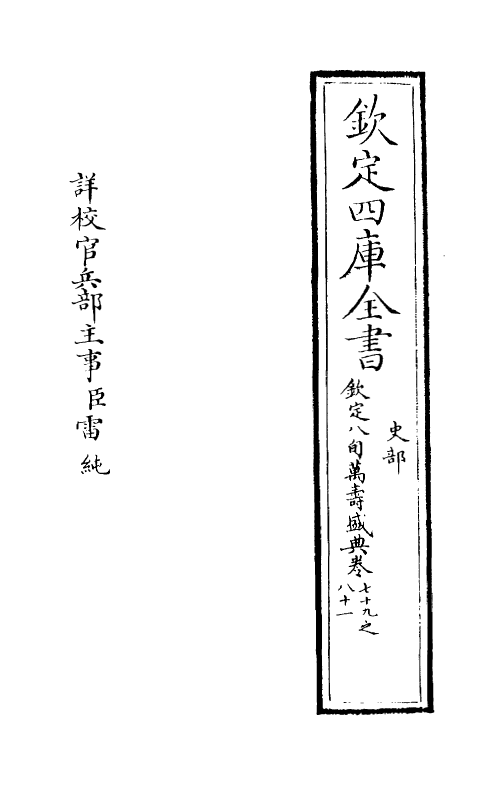 欽定四庫全書
史部
欽定八旬萬壽盛典卷七十九之八十一
詳校官兵部主事臣雷純